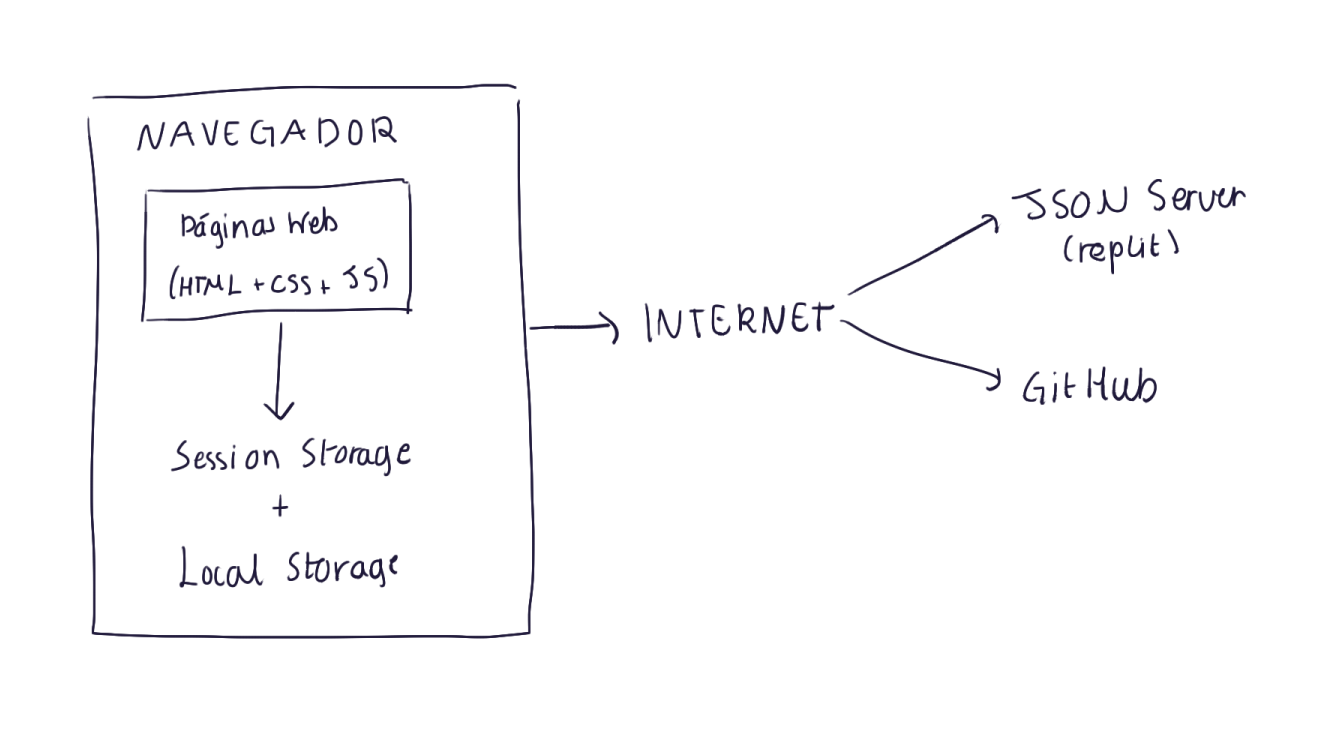 NAVEGADOR
Páginas Web
(HTML + CSS + JS)
Session Storage
+
Local Storage
INTERNET
JSON Server
(replit)
GitHub